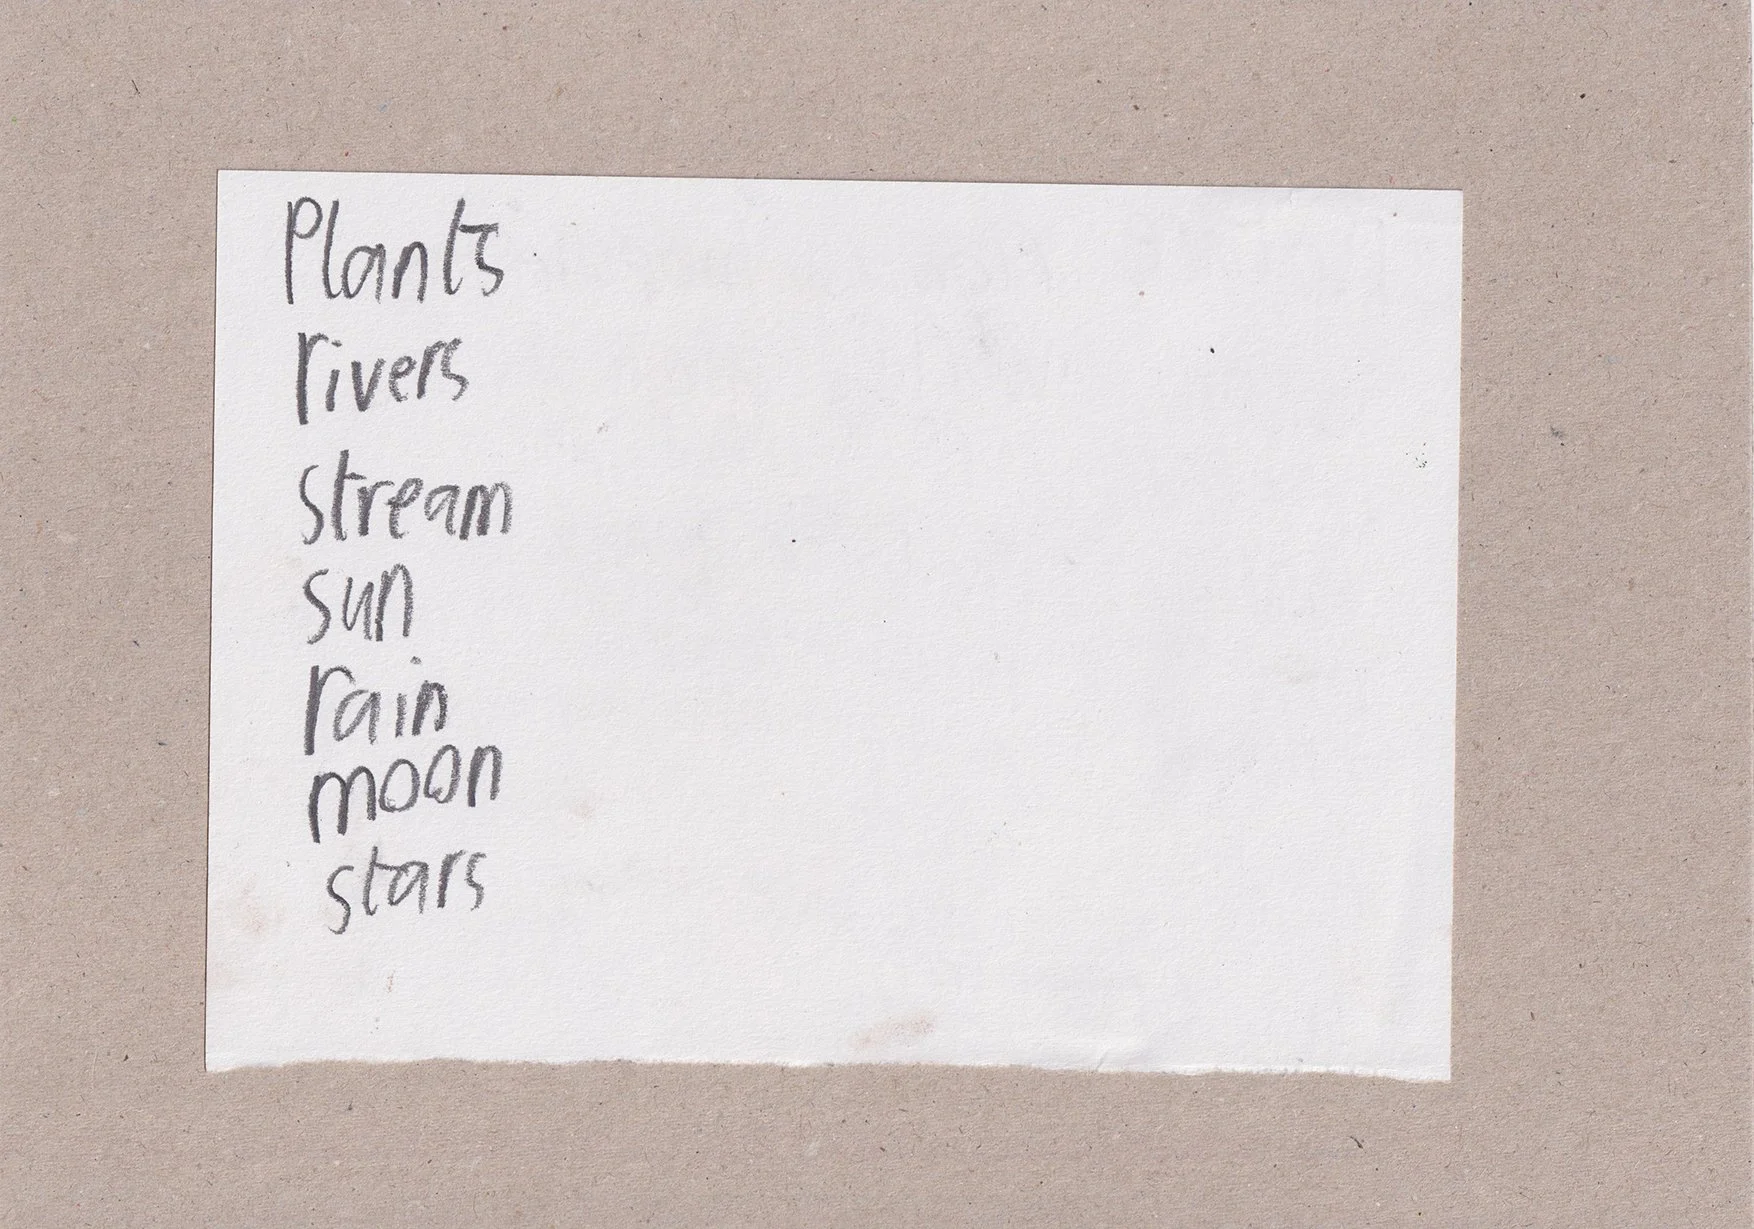 Plants
rivers
stream
sun
rain
moon
stars